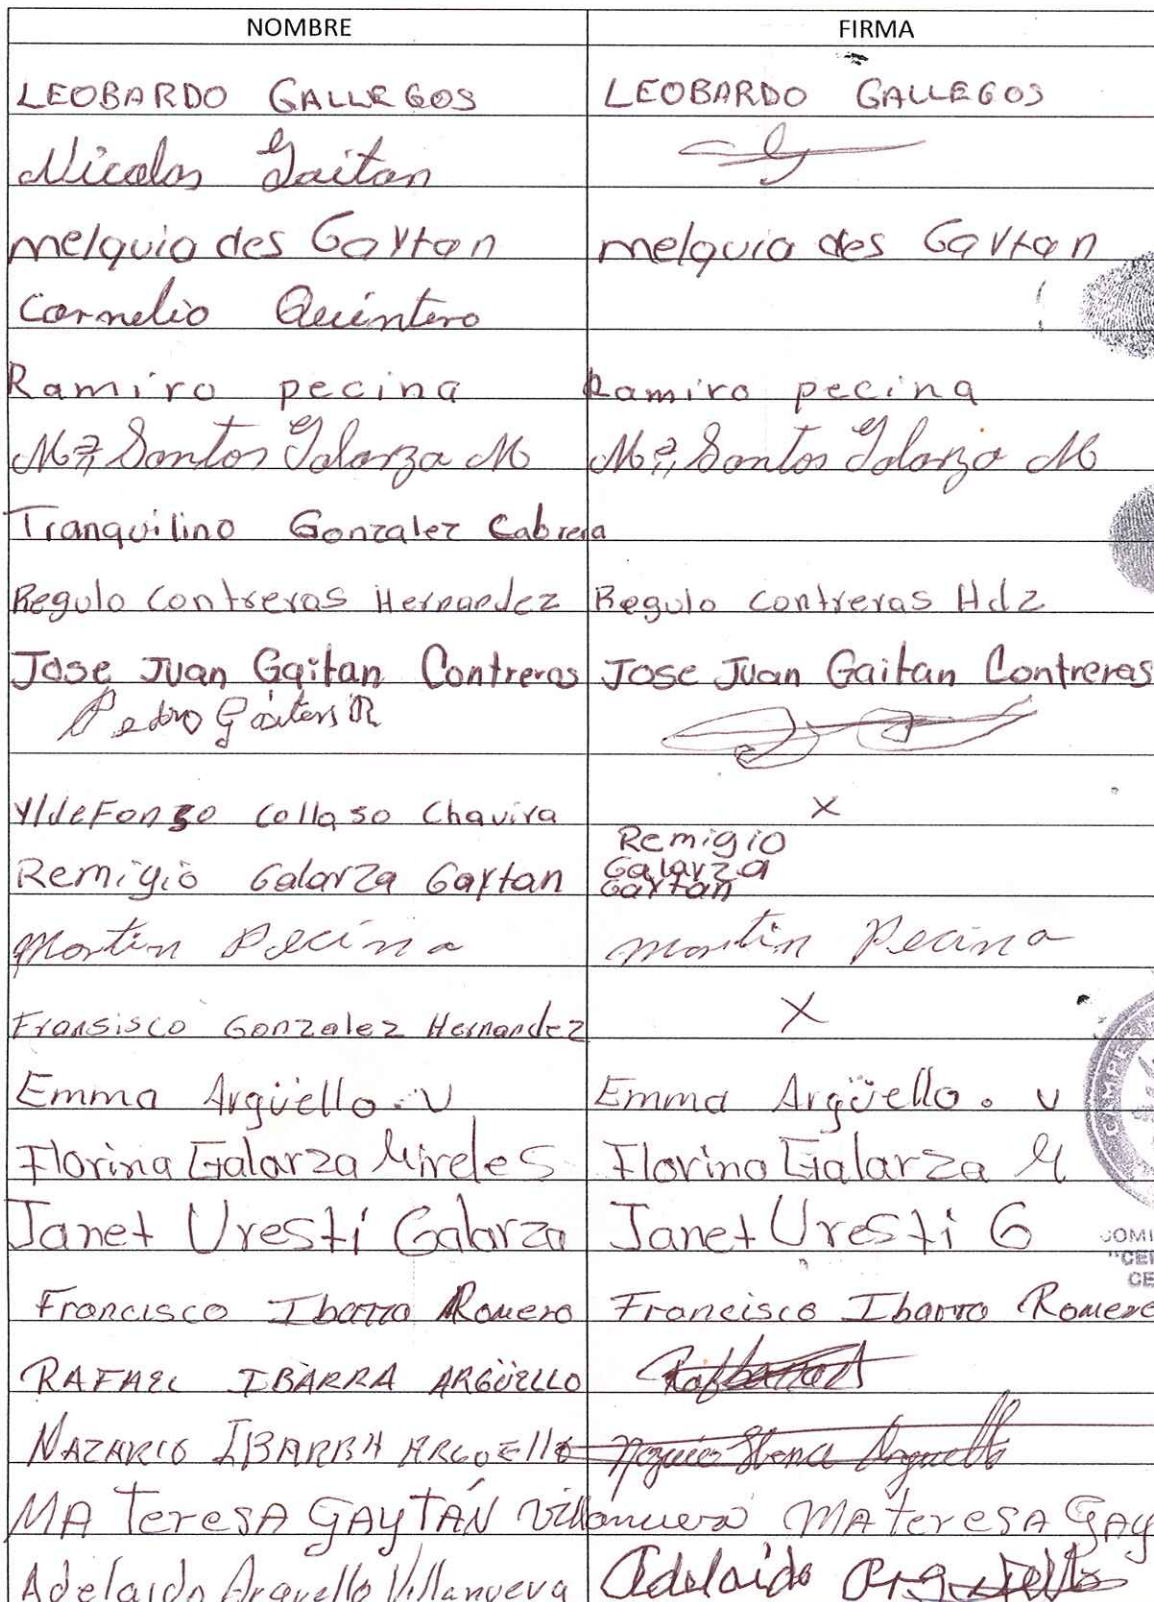 NOMBRE FIRMA
LEOBARDO GALLEGOS LEOBARDO GALLEGOS
Nicolas Gaitan
melquiades Gaytan melquiades Gaytan
Cornelio Quintero
Ramiro pecina Ramiro pecina
Ma Santos Galarza M Ma Santos Galarza M
Tranquilino Gonzalez Cabrera
Regulo Contreras Hernandez Regulo Contreras Hdz
Jose Juan Gaitan Contreras Jose Juan Gaitan Contreras
Pedro Gaitan R
YldeFonso Collaso Chavira X
Remigio Galarza Gaytan Remigio
Galarza
Gaytan
Martin Pecina Martin Pecina
Fransisco Gonzalez Hernandez X
Emma Argüello. V Emma Argüello. V
Florina Galarza Mireles Florina Galarza M
Janet Uresti Galarza Janet Uresti G
Francisco Ibarra Romero Francisco Ibarra Romero
RAFAEL IBARRA ARGÜELLO
NAZARIO IBARRA ARGUELLO
MA TeresA GAYTÁN Villanueva MA TeresA GAY
Adelaido Arguello Villanueva Adelaido
CAMPE
COMI
"CE
CE